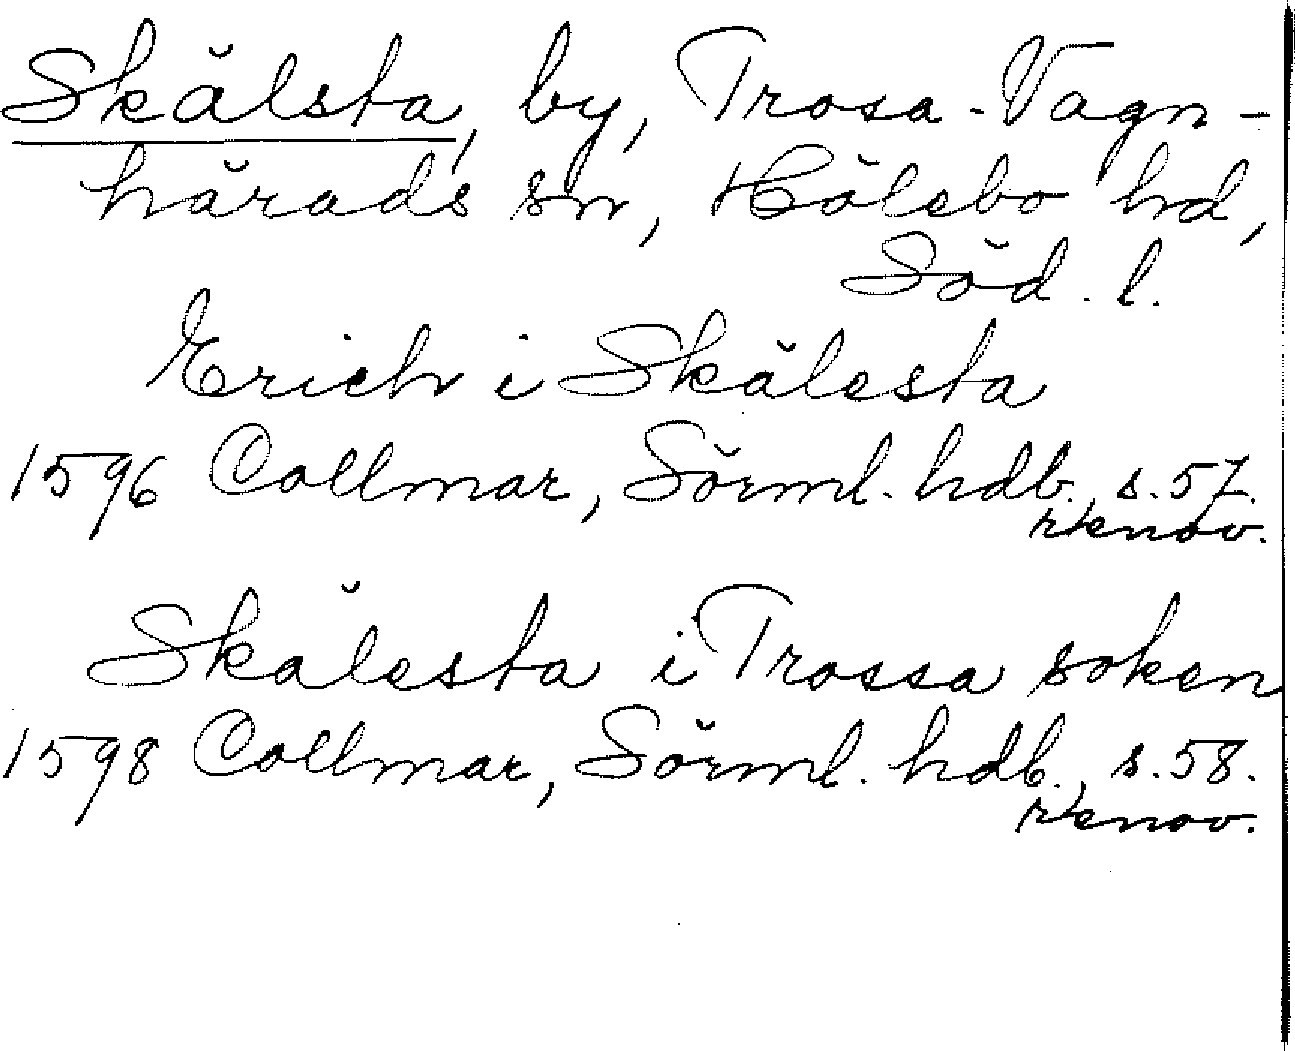 Skälsta, by, Trosa-Vagn-
härads sn, Hölebo hd,
Söd. l.
Erich i Skälesta
1596 Collmar, Sörml. hdb., s. 57.
renov.
Skälesta i Trossa soken
1598 Collmar, Sörml. hdb., s. 58.
renov.